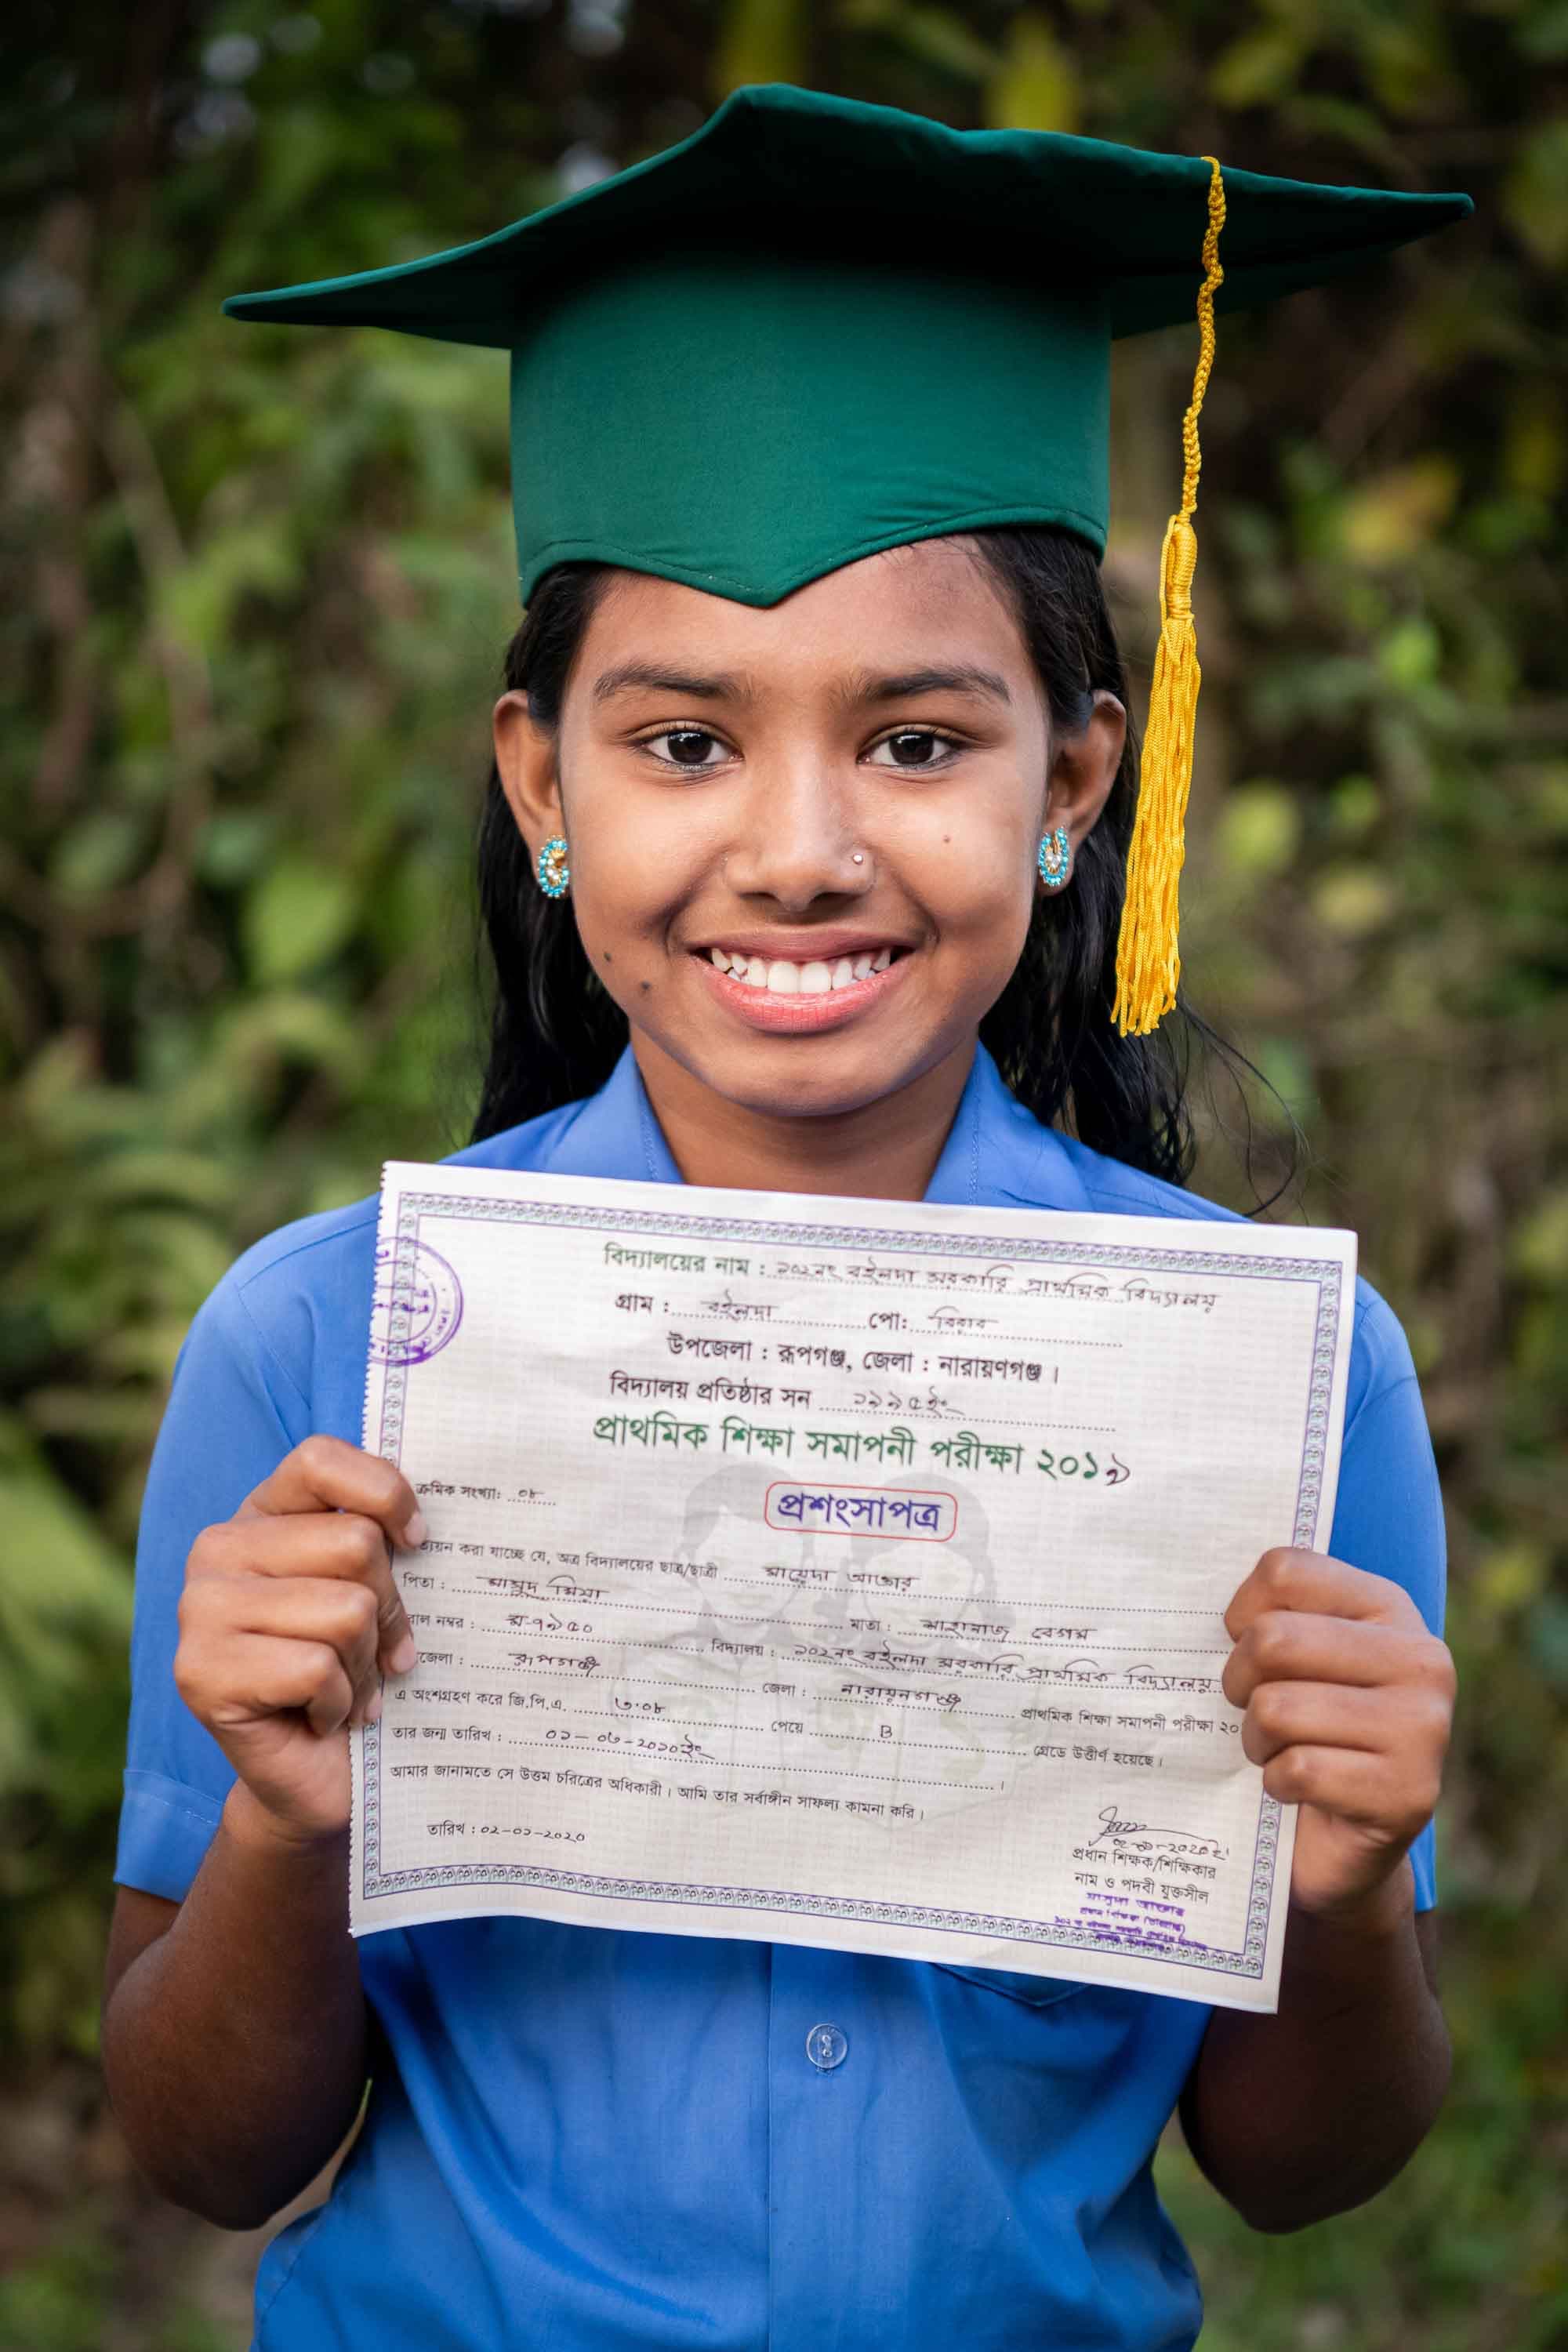 বিদ্যালয়ের নাম : ১০২নং বইলদা সরকারি প্রাথমিক বিদ্যালয়
গ্রাম : বইলদা পো: বিরাব
উপজেলা : রূপগঞ্জ, জেলা : নারায়ণগঞ্জ ।
বিদ্যালয় প্রতিষ্ঠার সন ১৯৯৫ইং
প্রাথমিক শিক্ষা সমাপনী পরীক্ষা ২০১৯
ক্রমিক সংখ্যা: ০৮
প্রশংসাপত্র
ত্যয়ন করা যাচ্ছে যে, অত্র বিদ্যালয়ের ছাত্র/ছাত্রী সায়েদা আক্তার
পিতা : মাসুদ মিয়া মাতা : মাহানাজ বেগম
রোল নম্বর : ম-৭৯৫০ বিদ্যালয় : ১০২নং বইলদা সরকারি প্রাথমিক বিদ্যালয়
জেলা : রূপগঞ্জ জেলা : নারায়নগঞ্জ প্রাথমিক শিক্ষা সমাপনী পরীক্ষা ২০
এ অংশগ্রহণ করে জি.পি.এ. ৩.০৮ পেয়ে B গ্রেডে উত্তীর্ণ হয়েছে।
তার জন্ম তারিখ : ০১-০৬-২০১০ইং ।
আমার জানামতে সে উত্তম চরিত্রের অধিকারী। আমি তার সর্বাঙ্গীন সাফল্য কামনা করি।
তারিখ : ০২-০১-২০২০
প্রধান শিক্ষক/শিক্ষিকার
নাম ও পদবী যুক্তসীল